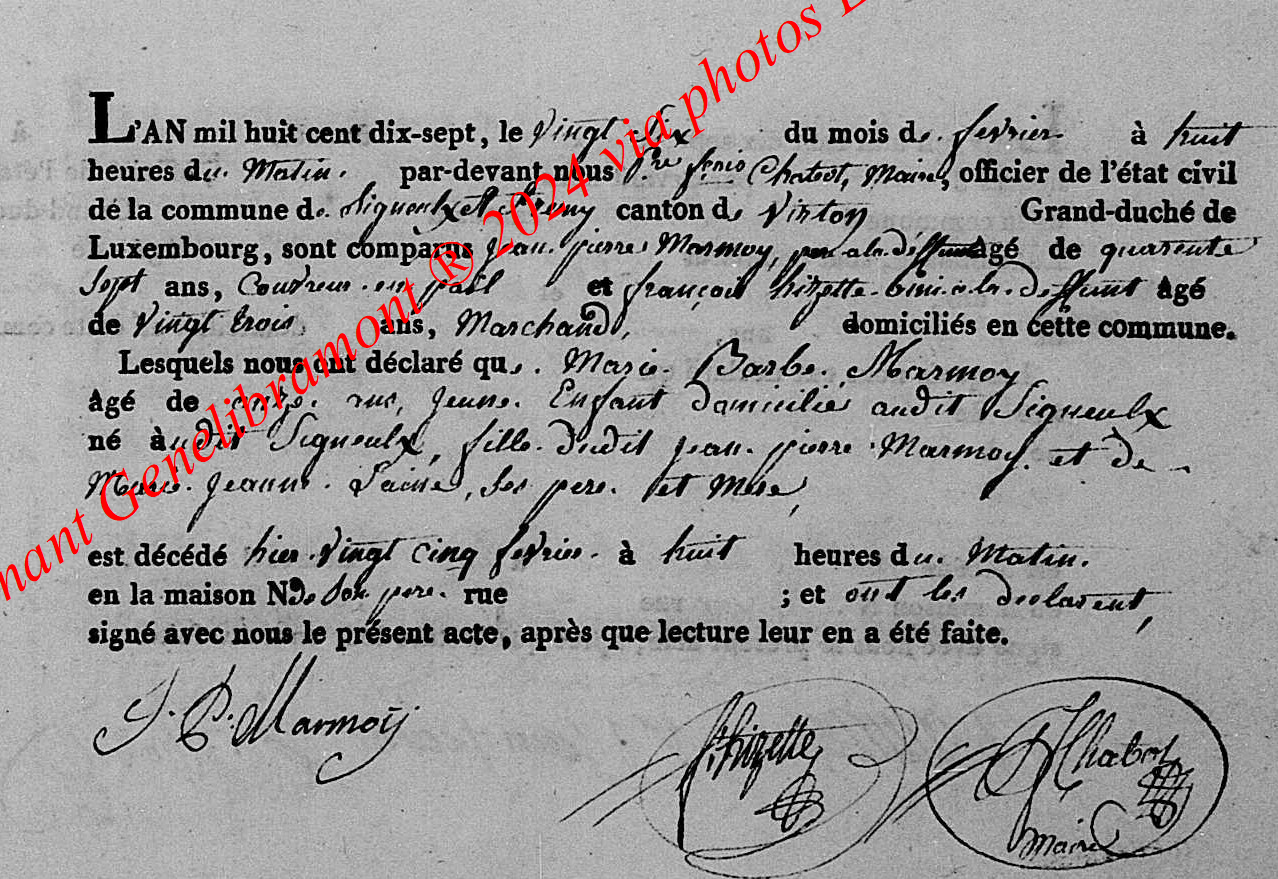 L'AN mil huit cent dix-sept, le vingt six du mois de fevrier à huit
heures du Matin. par-devant nous Pre fcois Chabot, Maire, officier de l'état civil
dé la commune de Signeulx et canton de Virton Grand-duché de
Luxembourg, sont comparus Jean pierre Marmoy, agé de quarente
Sept ans, Couvreur en paill et françois hizette du deffunt agé
de Vingt trois ans, Marchand, domiciliés en cette commune.
Lesquels nous ont déclaré que Marie Barbe Marmoy
agé de onze jeune Enfant domicilié audit Signeulx
né audit Signeulx, fille dudit jean pierre Marmoy et de
Marie jeanne ses pere et Mere,
est décédé hier vingt cinq fevrier à huit heures du Matin.
en la maison de son pere rue ; et ont les declarent,
signé avec nous le présent acte, après que lecture leur en a été faite.
J. P. Marmoÿ
hizette
Chabot
Maire
nant Genelibramont ® 2024 via photos